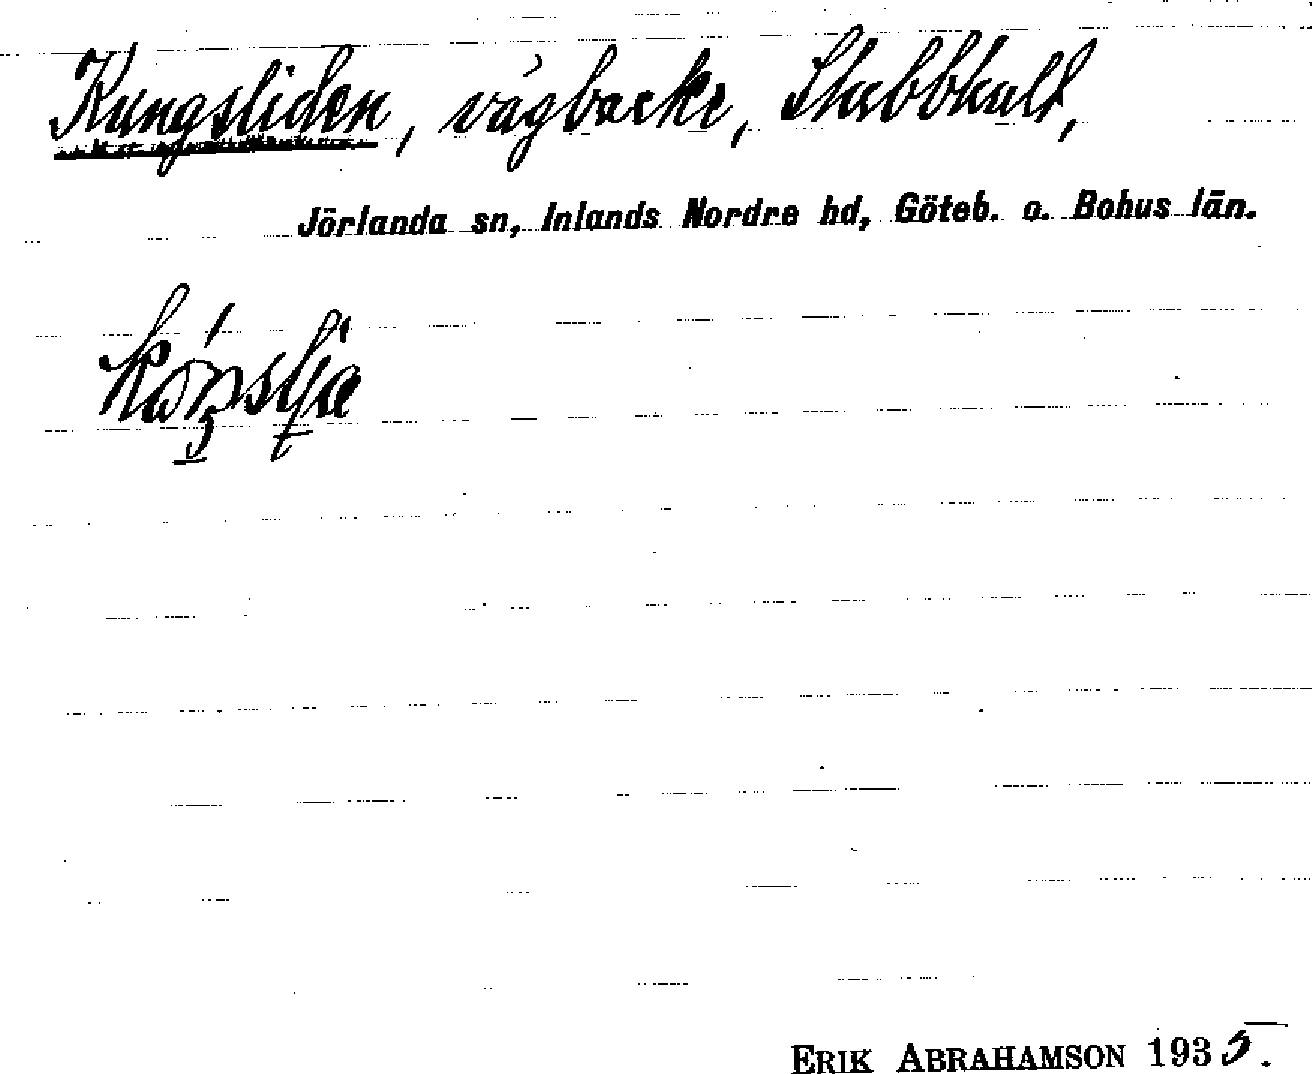 Kungsliden, vägbacke, Stubbhult,
Jörlanda sn, Inlands Nordre hd, Göteb. o. Bohus län.
ERIK ABRAHAMSON 1935.